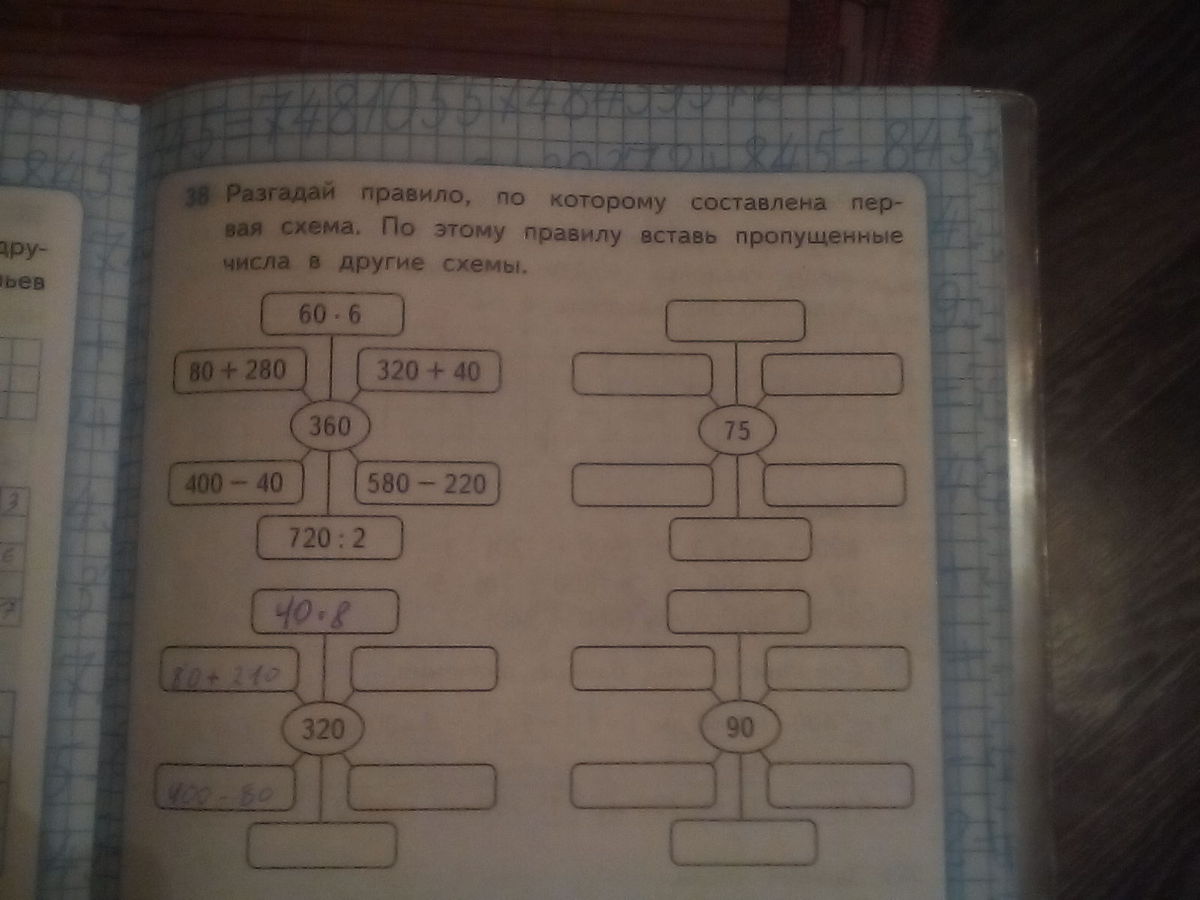 845
38 Разгадай правило, по которому составлена пер-
вая схема. По этому правилу вставь пропущенные
числа в другие схемы.
дру-
ьев
60 · 6
80 + 280
320 + 40
360
400 − 40
580 − 220
720 : 2
75
3
6
7
40·8
80+ 210
320
400 - 80
90